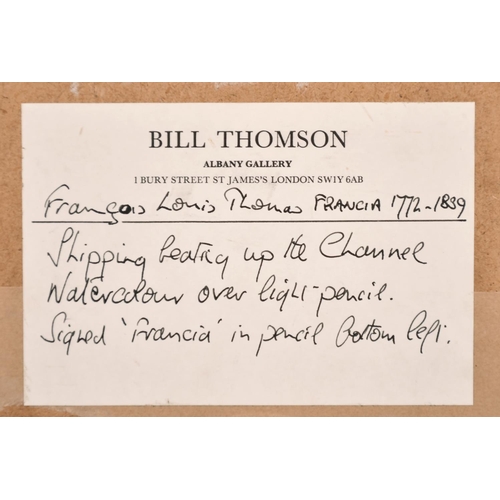 BILL THOMSON
ALBANY GALLERY
1 BURY STREET ST JAMES'S LONDON SW1Y 6AB
François Louis Thomas FRANCIA 1772-1839
Shipping beating up the Channel
Watercolour over light pencil.
Signed 'Francia' in pencil bottom left.